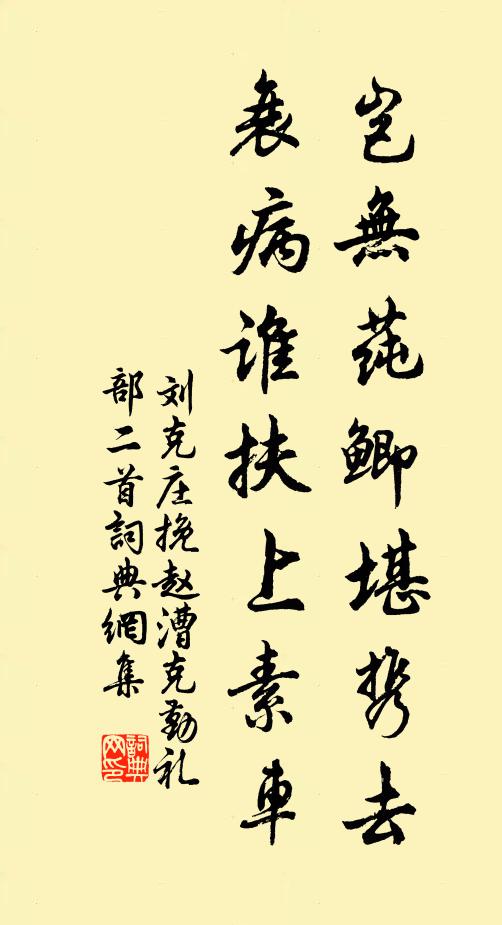 岂無莼鲫堪携去
衰病谁扶上素車
刘克庄挽赵漕克勤礼
部二首詞典網集
詞典
网印